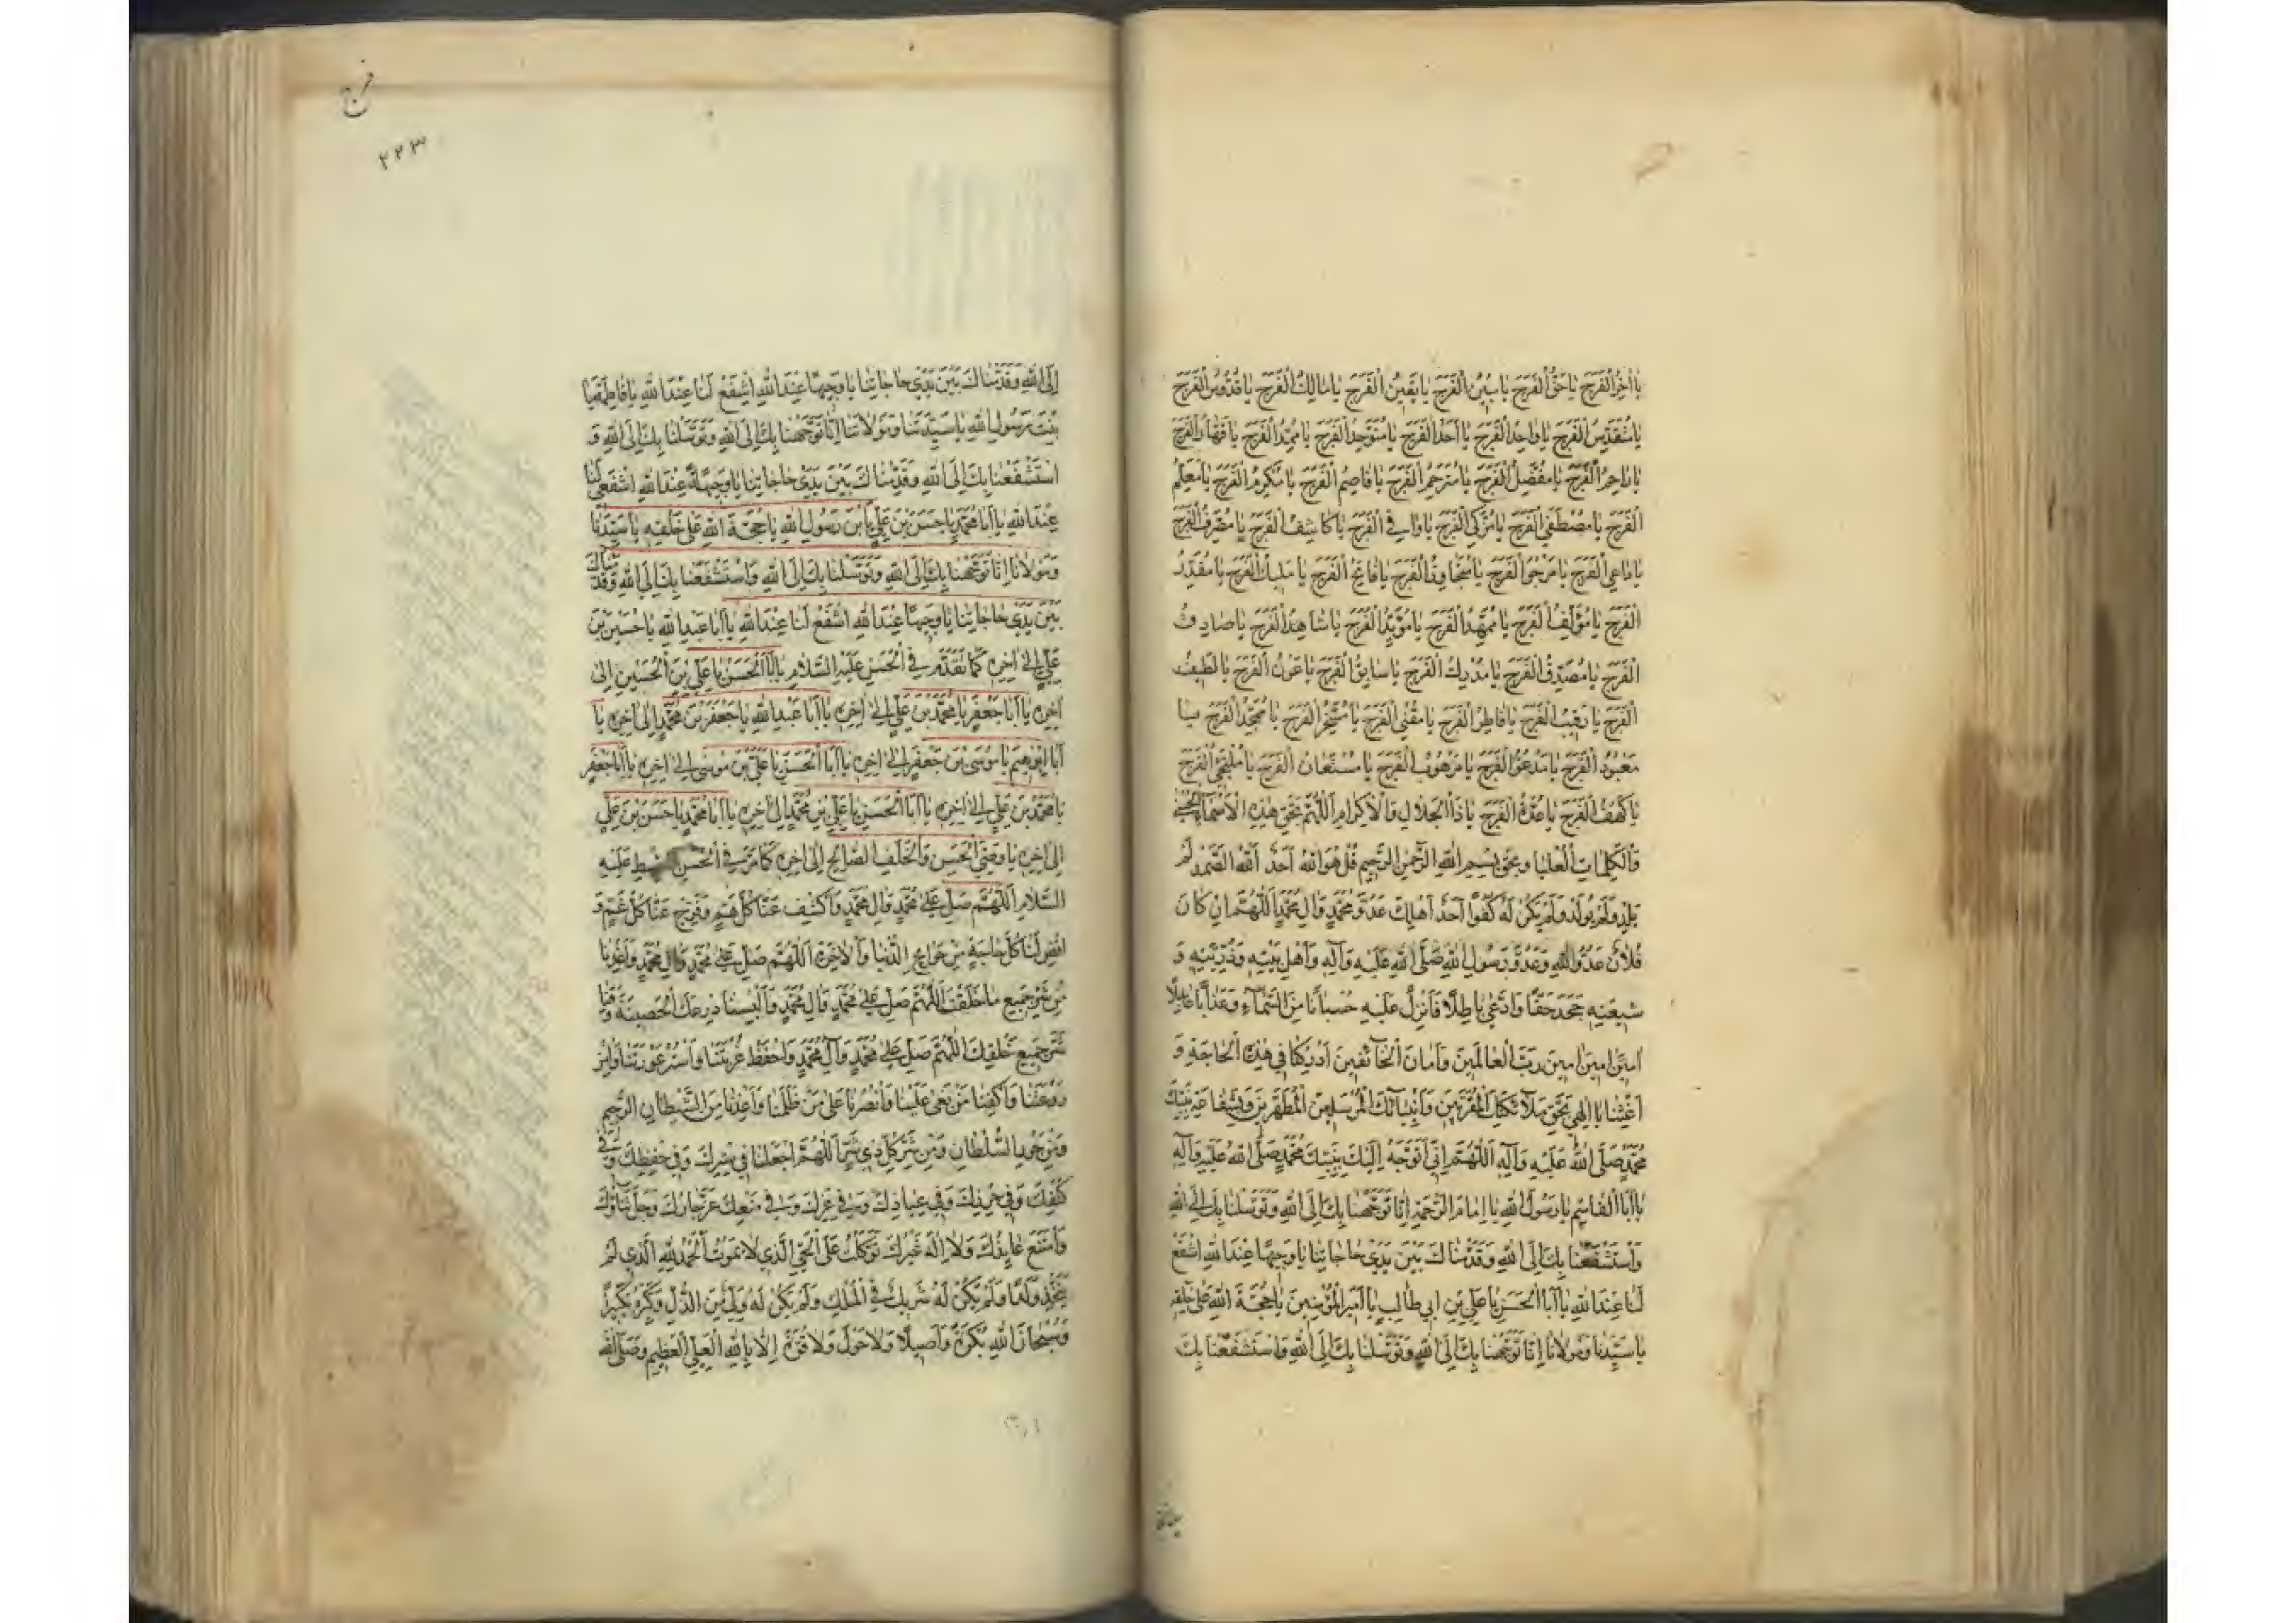 يا آخر الفرج يا حق الفرج يا مبين الفرج يا يقين الفرج يا مالك الفرج يا قدوس الفرج
يا متقدس الفرج يا واحد الفرج يا أحد الفرج يا متوحد الفرج يا ممد الفرج يا قهار الفرج
يا راحم الفرج يا مفضل الفرج يا مترحم الفرج يا قاصم الفرج يا مكرم الفرج يا معلم
الفرج يا مصطفى الفرج يا مزكي الفرج يا وافي الفرج يا كاشف الفرج يا مصرف الفرج
يا داعي الفرج يا مرجو الفرج يا متجاوز الفرج يا فاتح الفرج يا مليك الفرج يا مقدر
الفرج يا مؤلف الفرج يا ممهد الفرج يا مؤيد الفرج يا شاهد الفرج يا صادق
الفرج يا مصدق الفرج يا مدرك الفرج يا سابق الفرج يا عون الفرج يا لطيف
الفرج يا رقيب الفرج يا فاطر الفرج يا مفني الفرج يا مسخر الفرج يا ممجد الفرج يا
معبود الفرج يا مدعو الفرج يا مرهوب الفرج يا مستعان الفرج يا ملتجئ الفرج
يا كهف الفرج يا عدة الفرج يا ذا الجلال والإكرام اللهم بحق هذه الأسماء الحسنى
والكلمات العليا وبحق بسم الله الرحمن الرحيم قل هو الله أحد الله الصمد لم
يلد ولم يولد ولم يكن له كفوا أحد أهلك عدو محمد وآل محمد اللهم إن كان
فلان عدو الله وعدو رسول الله صلى الله عليه وآله وأهل بيته وذريته و
شيعته جحد حقا وادعى باطلا فأنزل عليه حسبانا من السماء وعذابا عاجلا
آمين آمين رب العالمين وأمان الخائفين أدركنا في هذه الحاجة و
أغثنا يا إلهي بحق ملائكتك المقربين وأنبيائك المرسلين المطهرين وبشفاعة نبيك
محمد صلى الله عليه وآله اللهم إني أتوجه إليك بنبيك محمد صلى الله عليه وآله
يا أبا القاسم يا رسول الله يا إمام الرحمة إنا توجهنا بك إلى الله وتوسلنا بك إلى الله
واستشفعنا بك إلى الله وقدمناك بين يدي حاجاتنا يا وجيها عند الله اشفع
لنا عند الله يا أبا الحسن يا علي بن أبي طالب يا أمير المؤمنين يا حجة الله على خلقه
يا سيدنا ومولانا إنا توجهنا بك إلى الله وتوسلنا بك إلى الله واستشفعنا بك
فرج
٢٢٣
إلى الله وقدمناك بين يدي حاجاتنا يا وجيها عند الله اشفع لنا عند الله يا فاطمة يا
بنت رسول الله يا سيدتنا ومولاتنا إنا توجهنا بك إلى الله وتوسلنا بك إلى الله و
استشفعنا بك إلى الله وقدمناك بين يدي حاجاتنا يا وجيهة عند الله اشفعي لنا
عند الله يا أبا محمد يا حسن بن علي يا بن رسول الله يا حجة الله على خلقه يا سيدنا
ومولانا إنا توجهنا بك إلى الله وتوسلنا بك إلى الله واستشفعنا بك إلى الله وقدمناك
بين يدي حاجاتنا يا وجيها عند الله اشفع لنا عند الله يا أبا عبد الله يا حسين بن
علي إلى آخره كما تقدم في الحسن عليه السلام يا أبا الحسن يا علي بن الحسين إلى
آخره يا أبا جعفر يا محمد بن علي إلى آخره يا أبا عبد الله يا جعفر بن محمد إلى آخره يا
أبا إبرهيم يا موسى بن جعفر إلى آخره يا أبا الحسن يا علي بن موسى إلى آخره يا أبا جعفر
يا محمد بن علي إلى آخره يا أبا الحسن يا علي بن محمد إلى آخره يا أبا محمد يا حسن بن علي
إلى آخره يا وصي الحسن والخلف الصالح إلى آخره كما مر في الحسن عليه
السلام اللهم صل على محمد وآل محمد واكشف عنا كل هم وفرج عنا كل غم و
اقض لنا كل حاجة من حوائج الدنيا والآخرة اللهم صل على محمد وآل محمد وأعذنا
من شر جميع ما خلقت اللهم صل على محمد وآل محمد وألبسنا درعك الحصينة وقنا
شر جميع خلقك اللهم صل على محمد وآل محمد واحفظ غربتنا واستر عورتنا وآمن
روعتنا واكفنا من بغى علينا وانصرنا على من ظلمنا وأعذنا من الشيطان الرجيم
ومن جور السلطان ومن شر كل ذي شر اللهم اجعلنا في سترك وفي حفظك وفي
كنفك وفي حرزك وفي عياذك وفي عزك وفي منعك عز جارك وجل ثناؤك
وامتنع عائذك ولا إله غيرك توكلت على الحي الذي لا يموت الحمد لله الذي لم
يتخذ ولدا ولم يكن له شريك في الملك ولم يكن له ولي من الذل وكبره تكبيرا
وسبحان الله بكرة وأصيلا ولا حول ولا قوة إلا بالله العلي العظيم وصلى الله